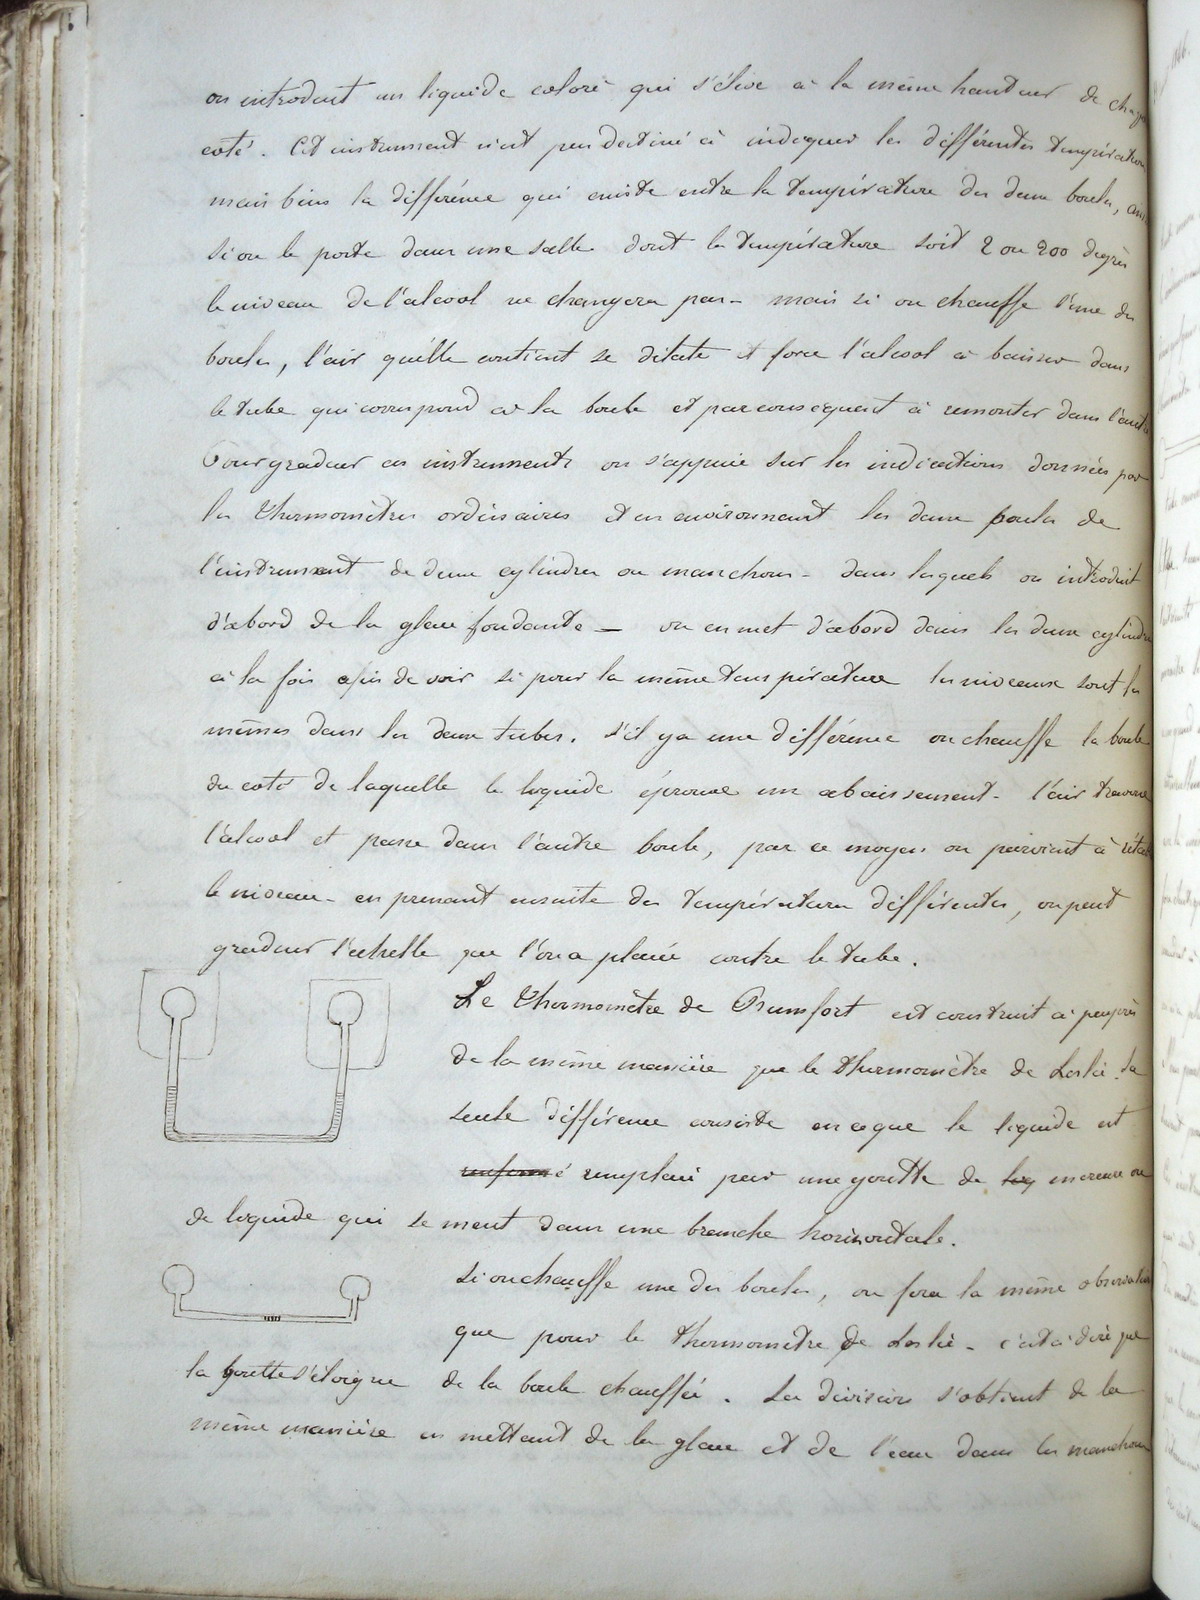 on introduit un liquide coloré qui s'élève à la même hauteur de chaque
coté. Cet instrument n'est pas destiné à indiquer les différentes températures
mais bien la différence qui existe entre la température des deux boules,
si on le porte dans une salle dont la température soit 2 ou 200 degrés
le niveau de l'alcool ne changera pas - mais si on chauffe l'une des
boules, l'air qu'elle contient se dilate et force l'alcool à baisser dans
le tube qui correspond à la boule et par conséquent à remonter dans l'autre
Pour graduer ces instruments on s'appuie sur les indications données par
les Thermomètres ordinaires et en environnant les deux boules de
l'instrument de deux cylindres ou manchons - dans lesquels on introduit
d'abord de la glace fondante - on en met d'abord dans les deux cylindres
à la fois afin de voir si pour la même température les niveaux sont les
mêmes dans les deux tubes. s'il y a une différence on chauffe la boule
du coté de laquelle le liquide éprouve un abaissement - l'air traverse
l'alcool et passe dans l'autre boule, par ce moyen on parvient à rétablir
le niveau - en prenant ensuite des températures différentes, on peut
graduer l'échelle que l'on a placée contre le tube.
Le Thermomètre de Rumfort est construit à peu près
de la même manière que le thermomètre de Leslie. la
seule différence consiste en ce que le liquide est
renfermé remplacé par une goutte de liq mercure ou
de liquide qui se meut dans une branche horizontale.
si on chauffe une des boules, on fera la même observation
que pour le thermomètre de Leslie - c'est à dire que
la goutte s'éloigne de la boule chauffée. Les divisions s'obtient de la
même manière en mettant de la glace et de l'eau dans les manchons